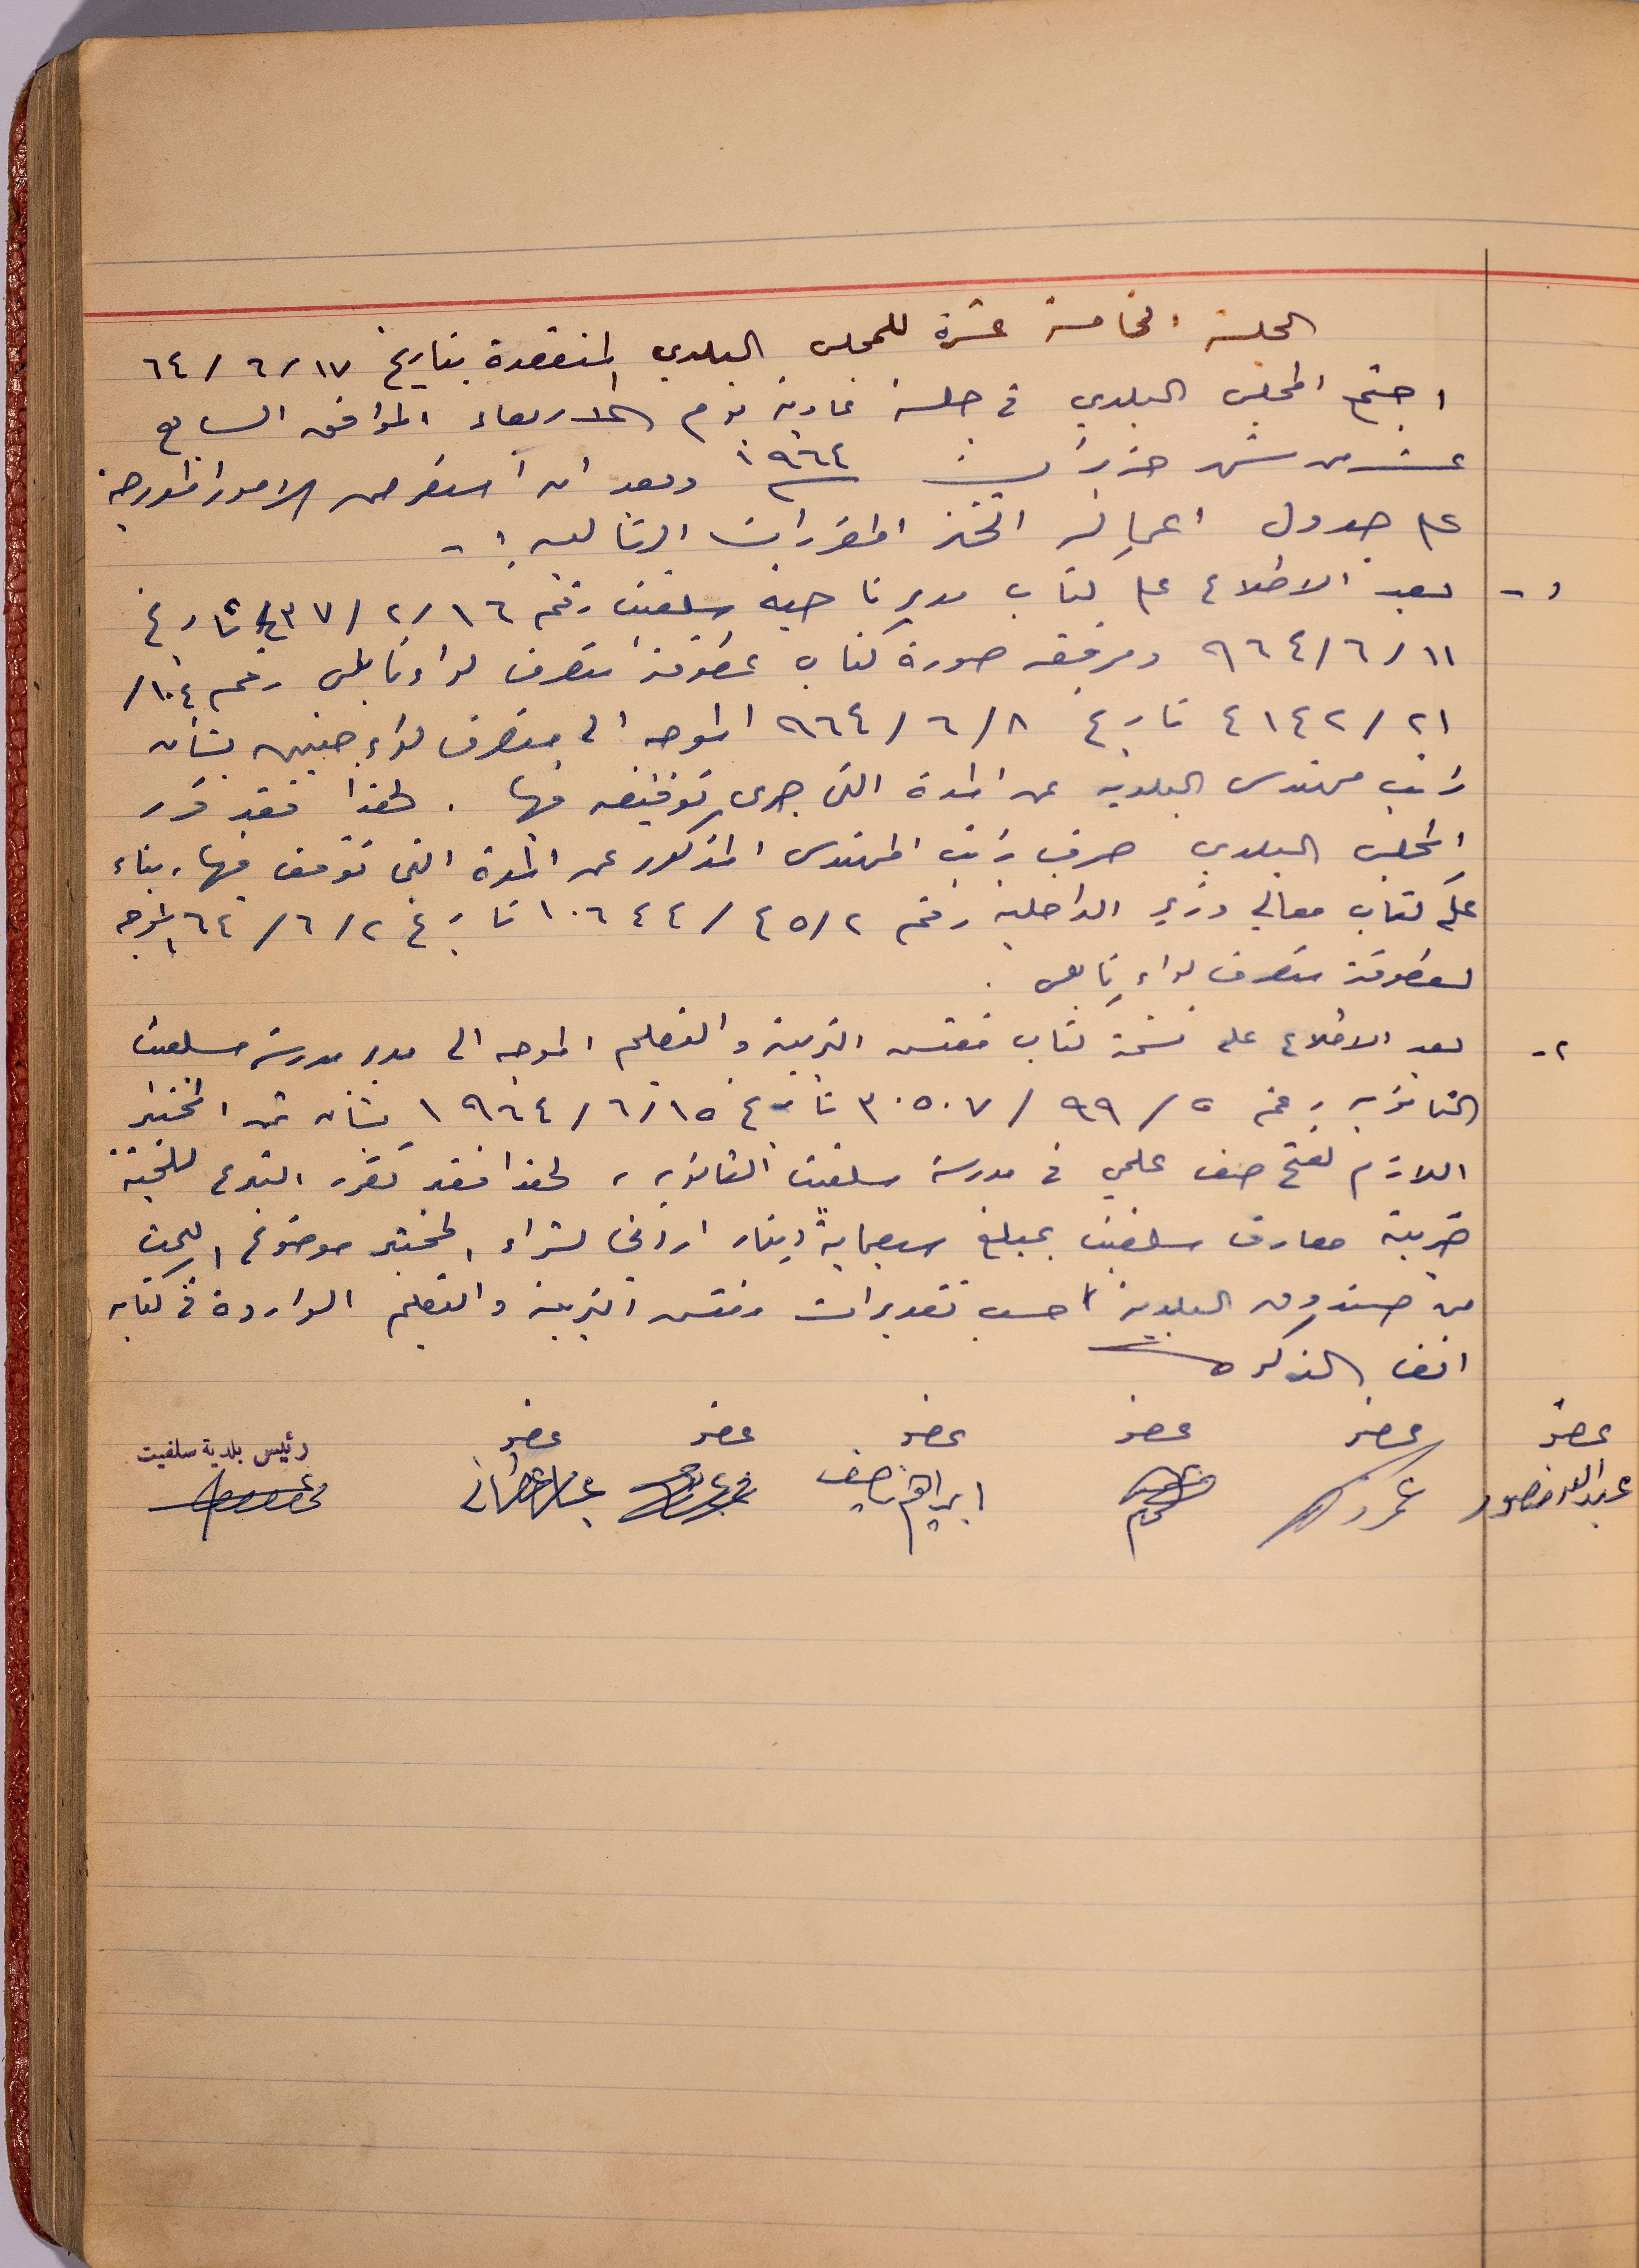 الجلسة الخامسة عشرة للمجلس البلدي المنعقدة بتاريخ ١٧/٦/٦٤
اجتمع المجلس البلدي في جلسة عادية يوم الاربعاء الموافق السابع
عشر من شهر حزيران سنة ١٩٦٤ وبعد ان استعرض الامور المدرجة
على جدول اعماله اتخذ المقررات التالية :-
١- بعد الاطلاع على كتاب مدير ناحية سلفيت رقم ١٦/٢/ تاريخ
١١/٦/٩٦٤ ومرفقه صورة كتاب عطوفة متصرف لواء نابلس رقم ١٠٤/
٢١/٤١٤٢ تاريخ ٨/٦/٩٦٤ الموجه الى متصرف لواء جنين بشأن
راتب مهندس البلدية عن المدة التي جرى توقيفه فيها . لهذا فقد قرر
المجلس البلدي صرف راتب المهندس المذكور عن المدة التي توقف فيها ، بناء
على كتاب معالي وزير الداخلية رقم ٤٥/٢/١٠٦٤٤ تاريخ ٢/٦/٦٤ الموجه
لعطوفة متصرف لواء نابلس .
٢- بعد الاطلاع على نسخة كتاب مفتش التربية والتعليم الموجه الى مدير مدرسة سلفيت
الثانوية رقم ٥/٩٩/٣٠٥٠٧ تاريخ ١٥/٦/١٩٦٤ بشأن ثمن المختبر
اللازم لفتح صف علمي في مدرسة سلفيت الثانوية ، لهذا فقد تقرر التبرع للجنة
ضريبة معارف سلفيت بمبلغ سبعماية دينار اردني لشراء المختبر موضوع البحث
من صندوق البلدية حسب تقديرات مفتش التربية والتعليم الواردة في كتابه
انف الذكر
عضو عضو عضو عضو عضو عضو رئيس بلدية سلفيت
عبد الله منصور ابراهيم